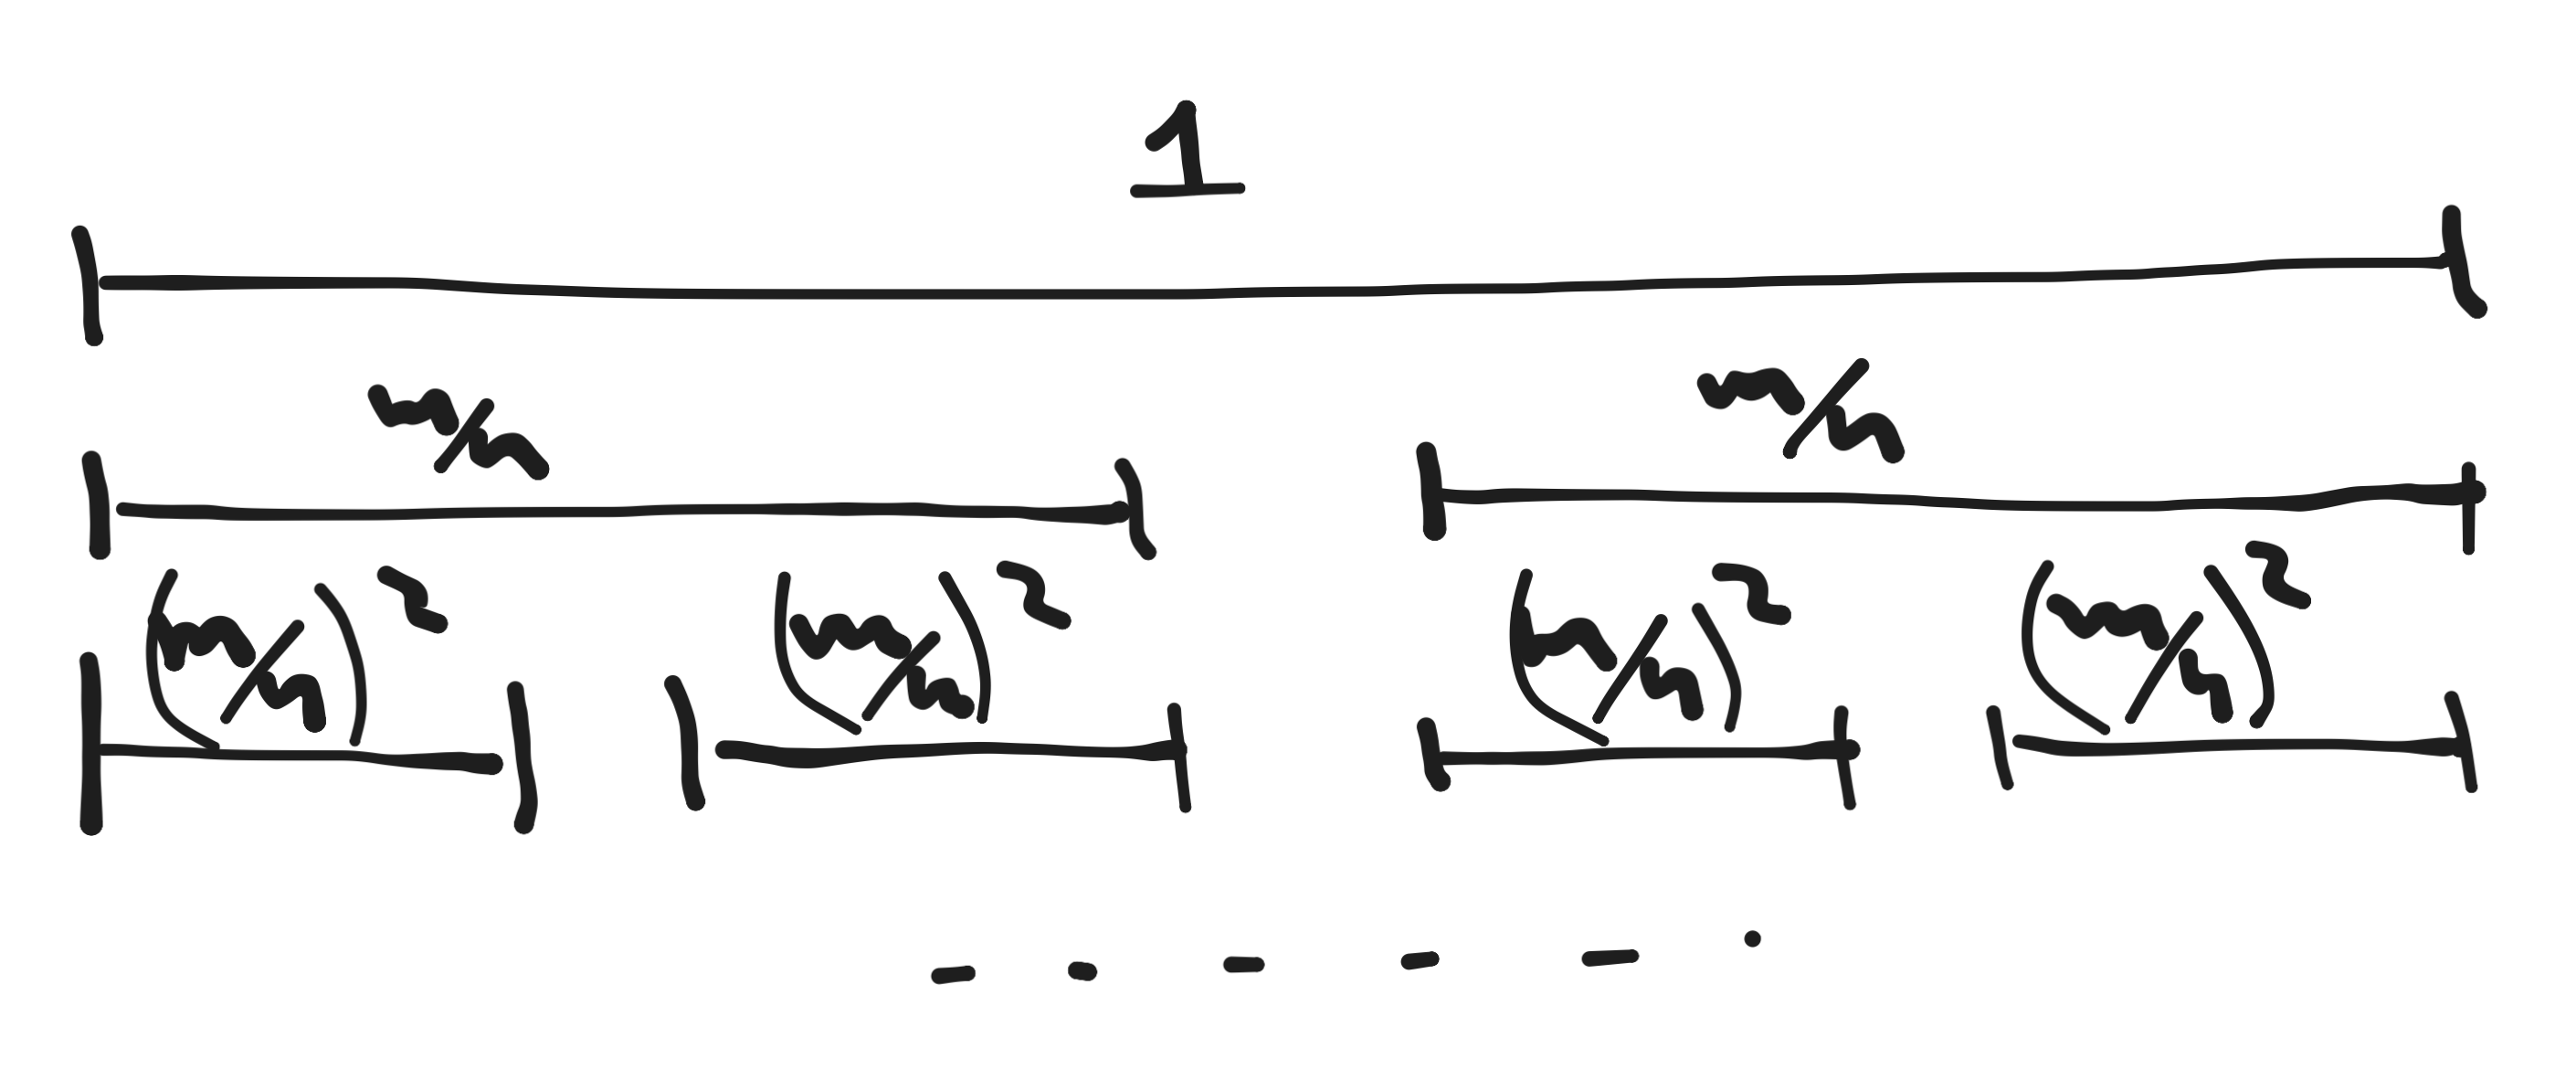 1
m/n m/n
(m/n)² (m/n)² (m/n)² (m/n)²